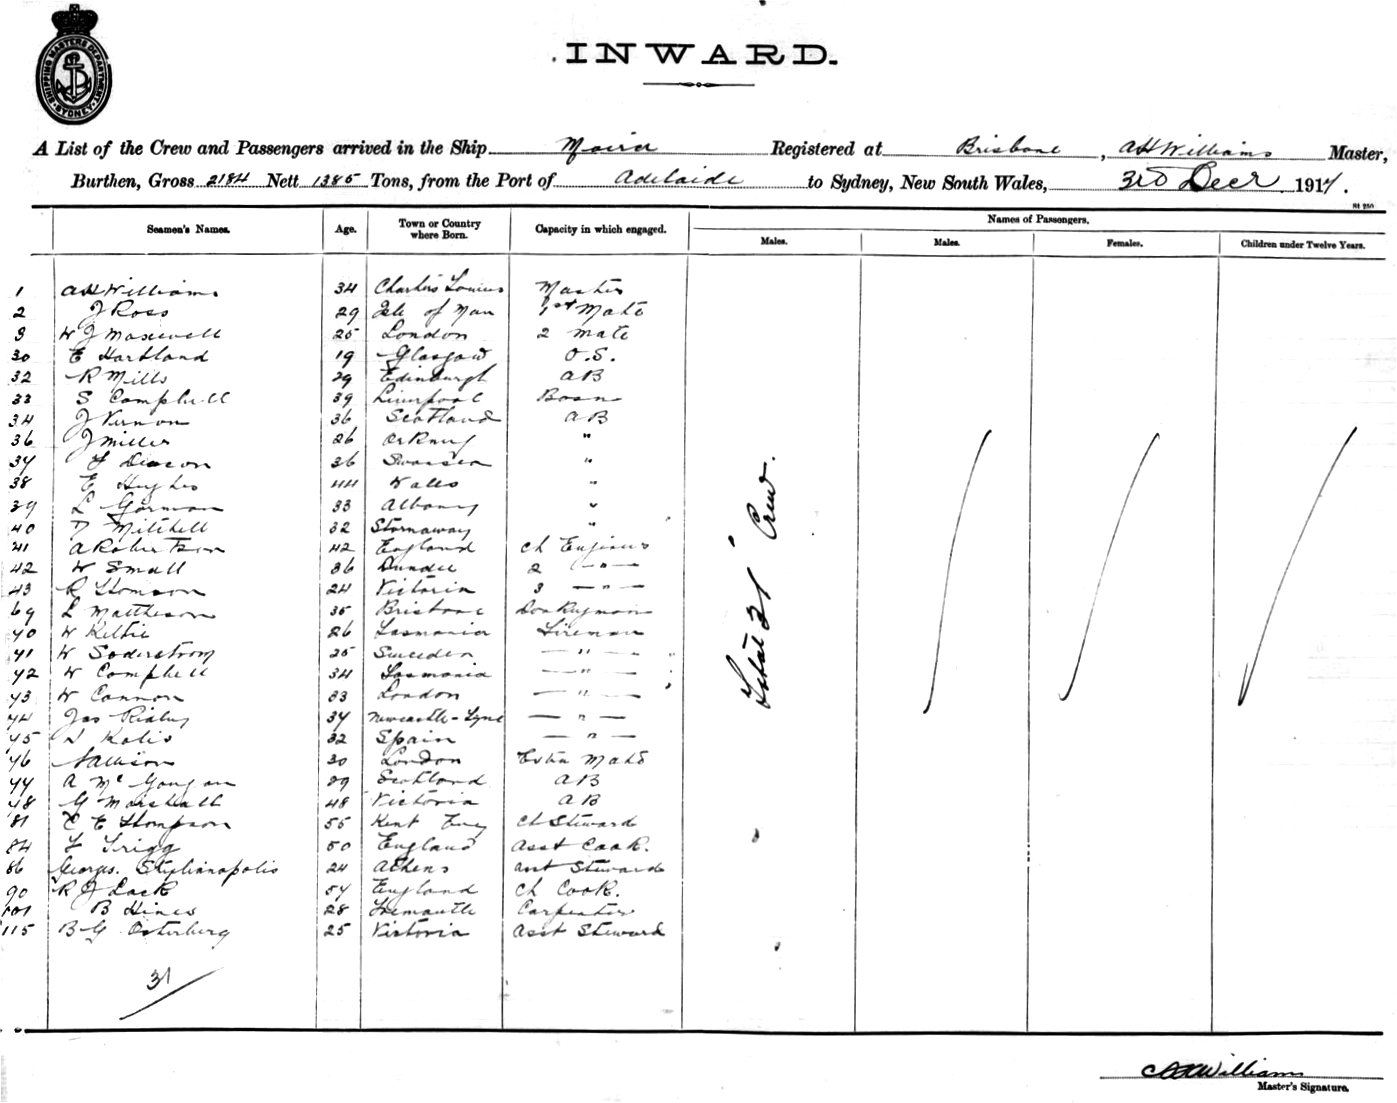 SHIPPING MASTERS DEPARTMENT SYDNEY
INWARD.
A List of the Crew and Passengers arrived in the Ship Moira Registered at Brisbane, AH Williams Master,
Burthen, Gross 2184 Nett 1385 Tons, from the Port of Adelaide to Sydney, New South Wales, 3rd Decr 1917.
St 250
Seamen's Names. Age. Town or Country where Born. Capacity in which engaged. Names of Passengers.
Males. Males. Females. Children under Twelve Years.
1 AH Williams 34 Charters Towers Master
2 J Ross 29 Isle of Man 1st Mate
3 W J Maxwell 25 London 2 mate
30 E Hartland 19 Glasgow O.S.
32 R Mills 29 Edinburgh AB
33 S Campbell 39 Liverpool Bosn
34 J Vernon 36 Scotland AB
36 J Miller 26 Orkney "
37 36 Swansea "
38 E Hughes 44 Wales "
39 L Gorman 33 Albany "
40 D Mitchell 32 Stornaway "
41 A Robertson 42 England Ch Engineer
42 W Small 36 Dundee 2 —"—
43 R Thomson 24 Victoria 3 —"—
69 L Mattheson 35 Brisbane Donkeyman
70 W Keltie 26 Tasmania Fireman
71 W Soderstrom 25 Sweden —"—
72 W Campbell 34 Tasmania —"—
73 W Cannon 33 London —"—
74 Jas Ridley 34 Newcastle-Tyne —"—
75 Kolis 32 Spain —"—
76 30 London Extra Mate
77 A Mc 29 Scotland AB
78 G Marshall 48 Victoria AB
81 C E Thompson 55 Kent Eng Ch Steward
84 F Trigg 50 England Asst Cook.
86 Georges. Stylianapolis 24 Athens asst Steward
90 R J Lack 54 England Ch Cook.
101 B Hines 28 Fremantle Carpenter
115 B G Osterberg 25 Victoria Asst Steward
31
Total 31 Crew.
AH Williams
Master's Signature.